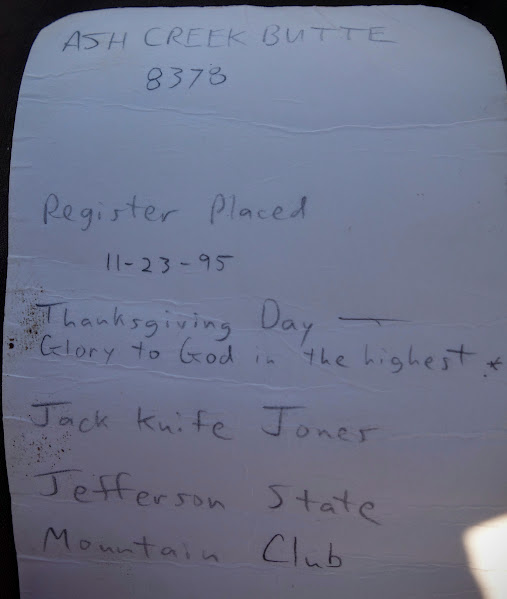 ASH CREEK BUTTE
8378
Register Placed
11-23-95
Thanksgiving Day —
Glory to God in the highest *
Jack Knife Jones
Jefferson State
Mountain Club